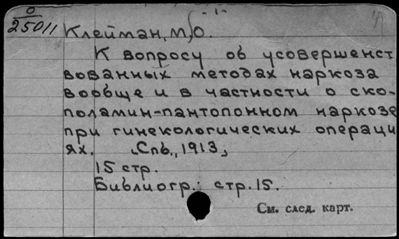 - 1 -
0
25011
Клейман, М. О.
К вопросу об усовершенст
вованных методах наркоза
вообще и в частности о ско-
поламин-пантопонном наркозе
при гинекологических операци
ях. Спб., 1913,
15 стр.
Библиогр.: стр. 15.
См. след. карт.